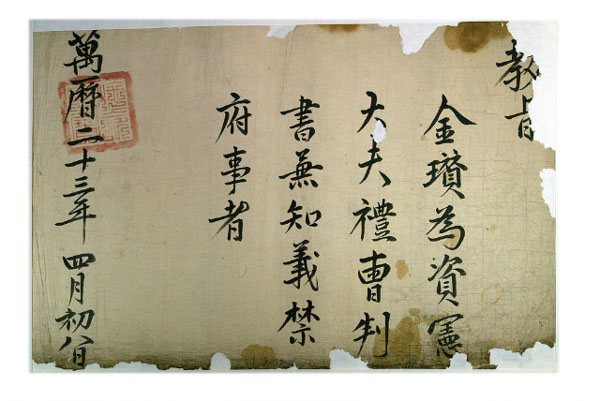 教旨
金瓚為資憲
大夫禮曹判
書兼知義禁
府事者
萬曆二十三年 四月初八日